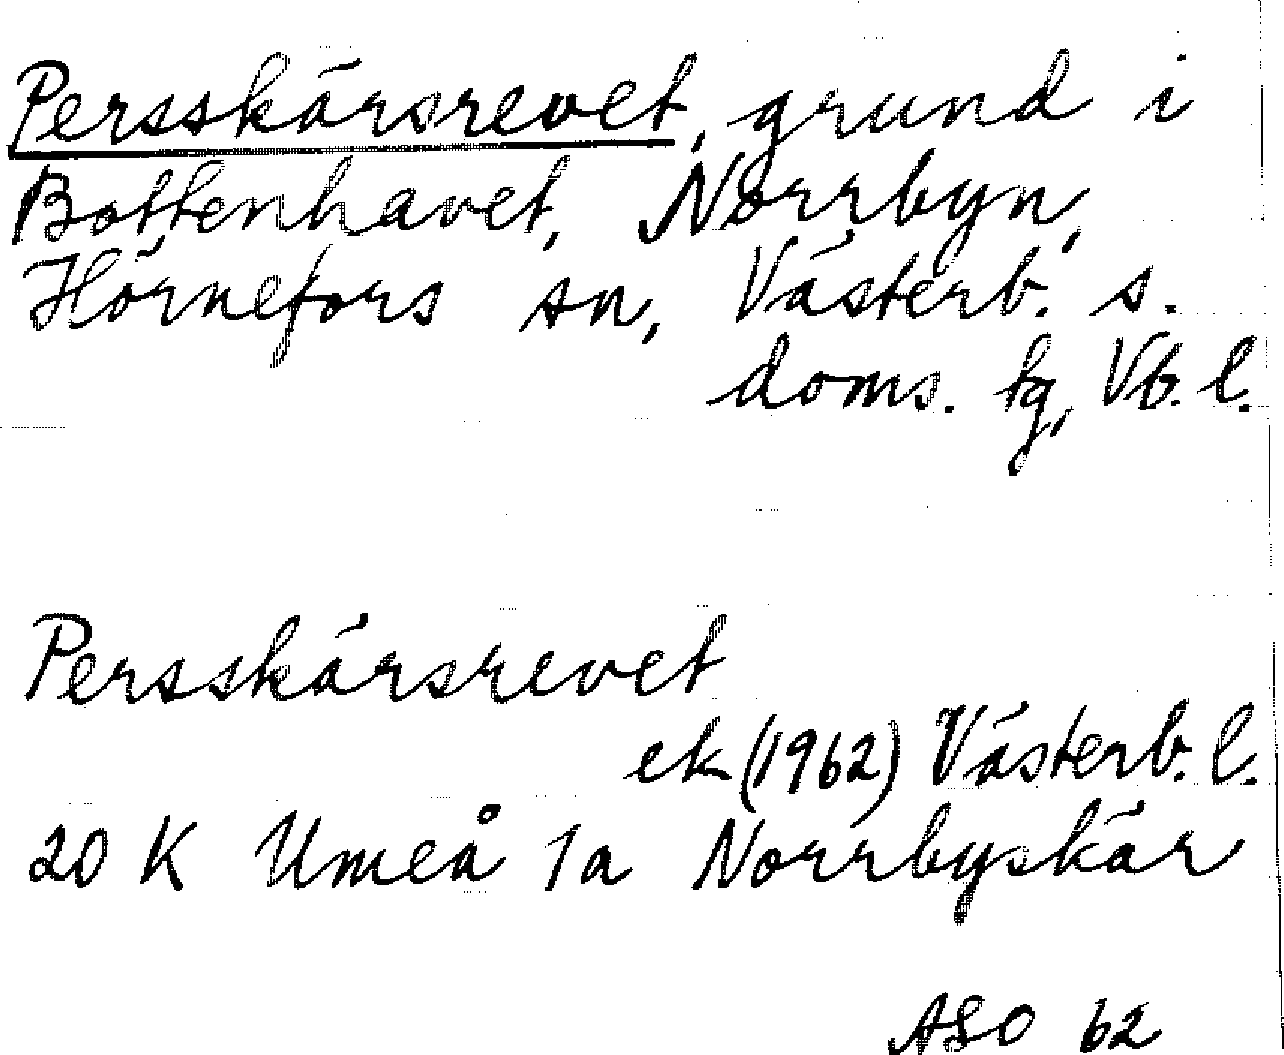 Persskärsrevet, grund i
Bottenhavet, Norrbyn,
Hörnefors sn, Västerb. s.
doms. tg, Vb. l.
Persskärsrevet
ek (1962) Västerb. l.
20 K Umeå 1a Norrbyskär
ASO 62